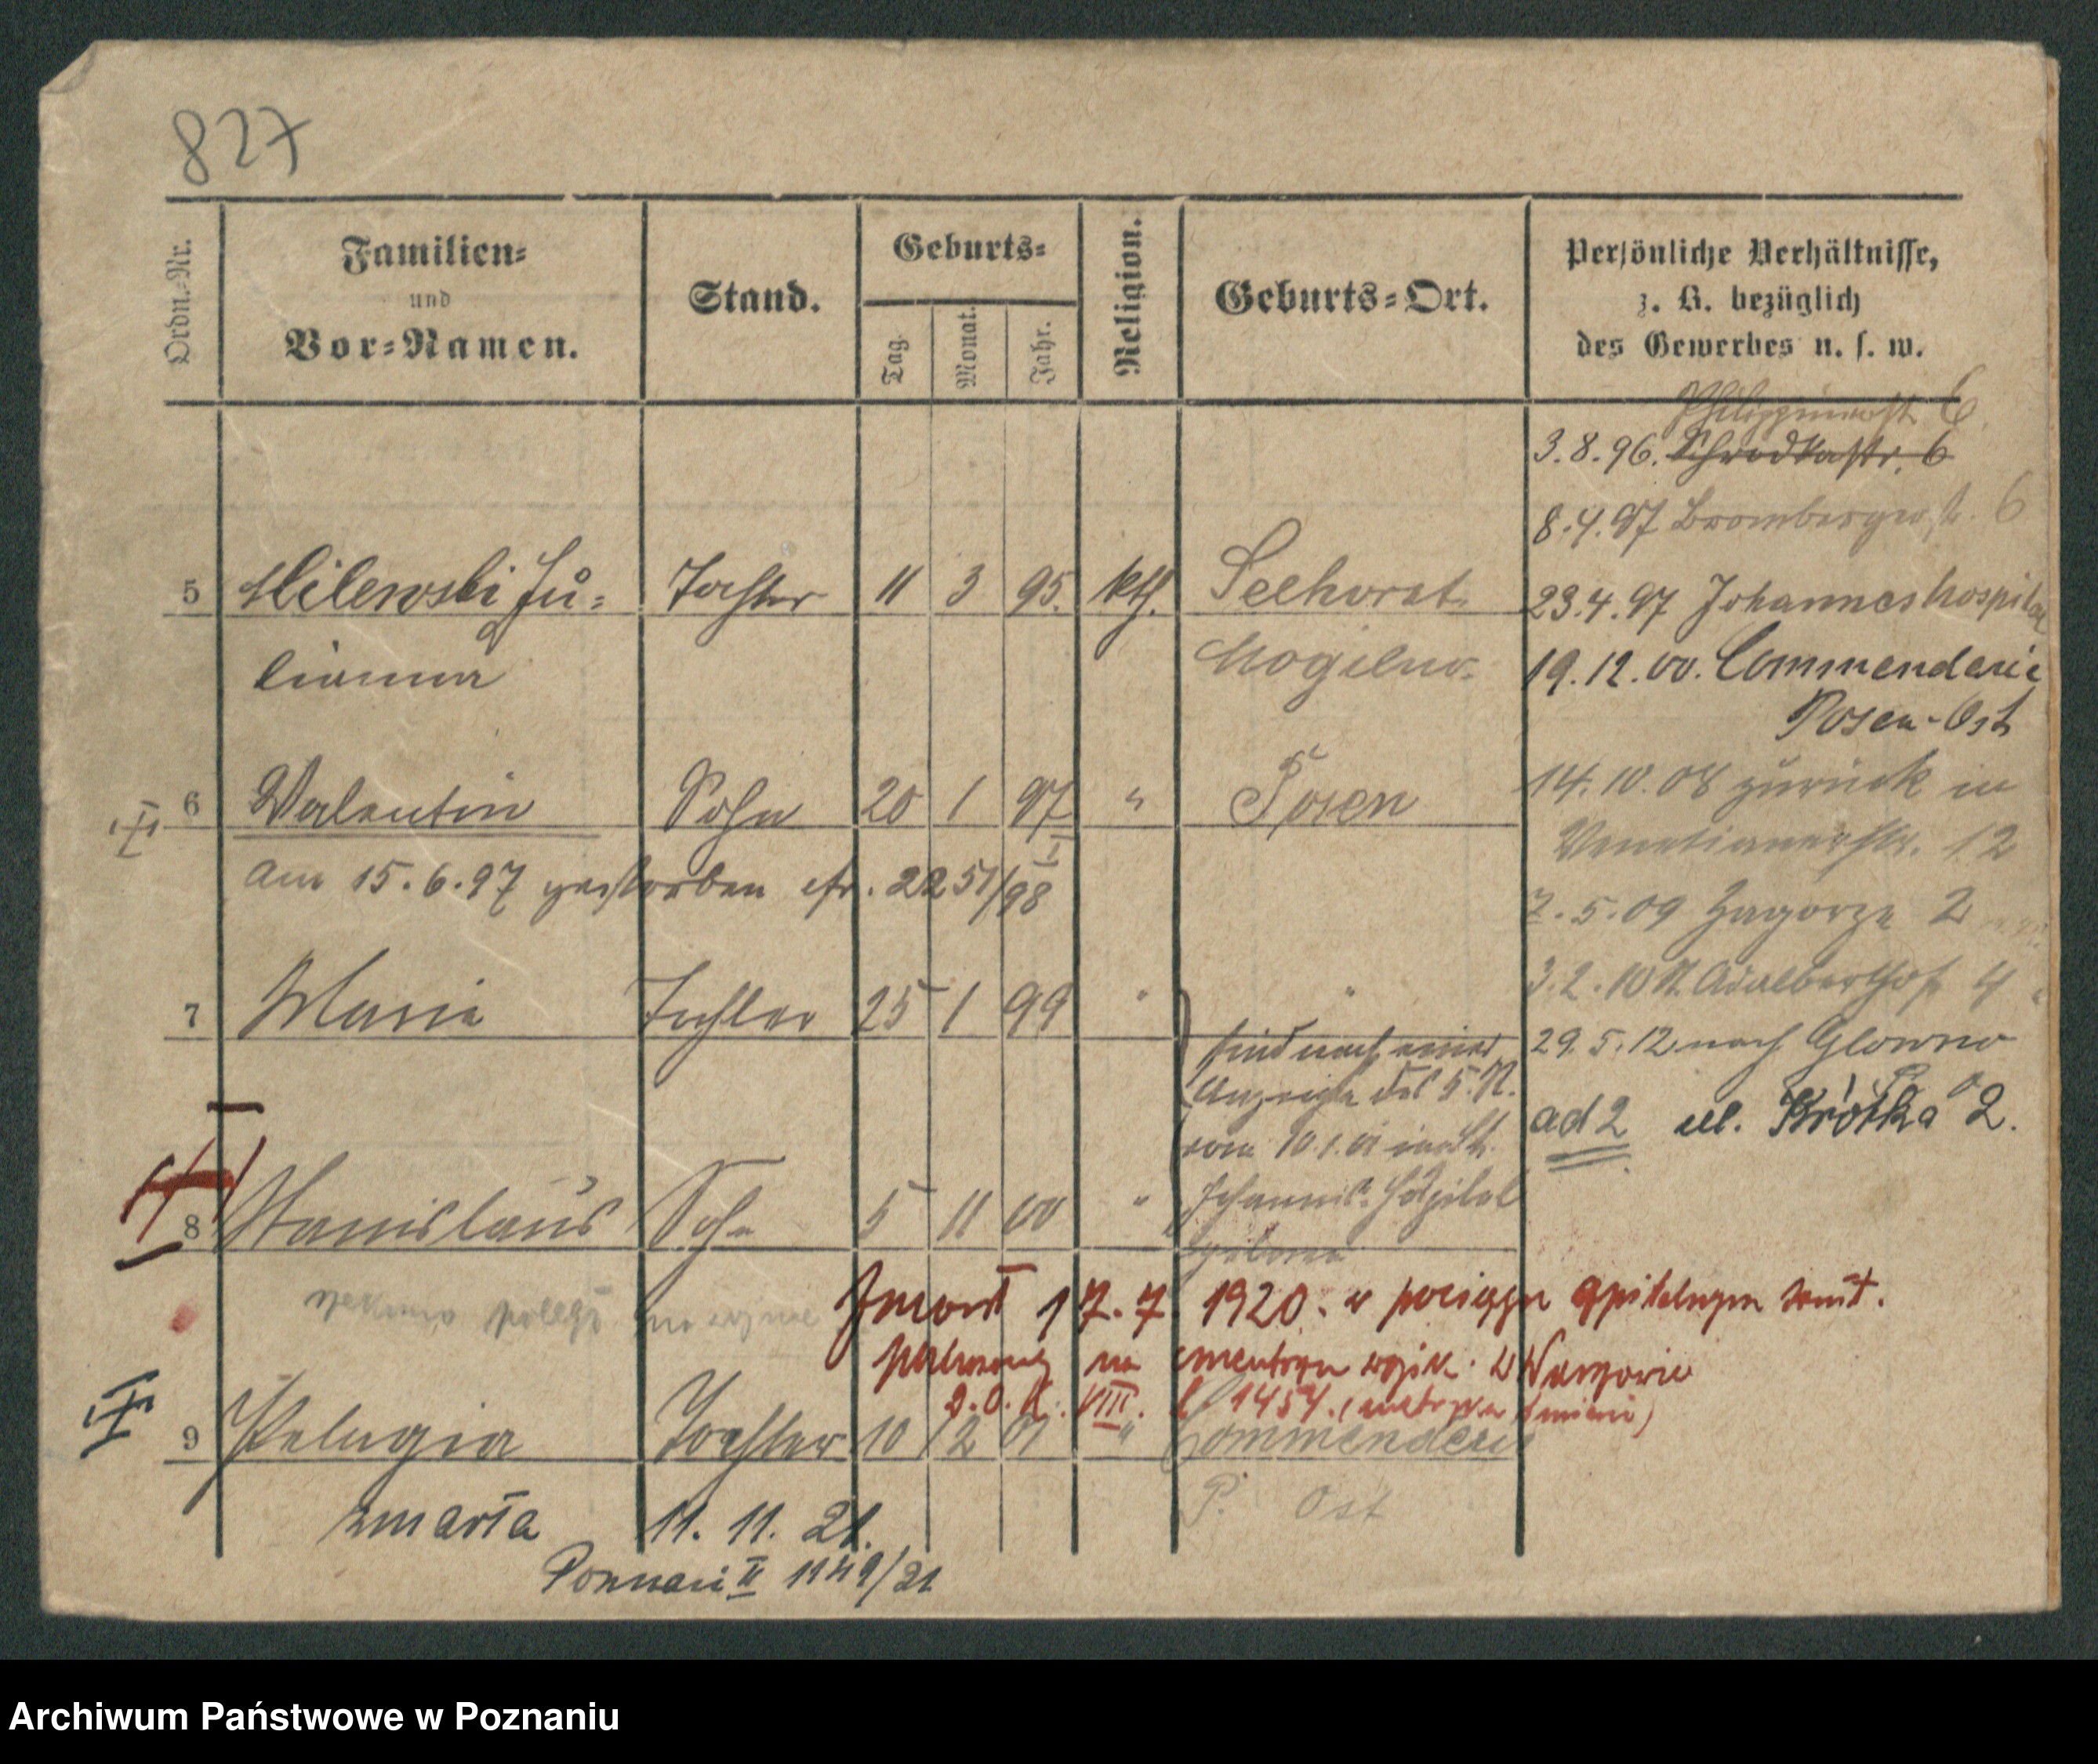 827
Ordn.-Nr.
Familien-
und
Vor-Namen.
Stand.
Geburts-
Tag.
Monat.
Jahr.
Religion.
Geburts-Ort.
Persönliche Verhältnisse,
z. B. bezüglich
des Gewerbes u. s. w.
Philippinerstr. 6
3.8.96. Schrodkastr. 6
8.4.97 Brombergerstr. 6
5 Milewski Ju- Tochter 11 3 95. kth. Seehorst
23.4.97 Johanneshospital
lianna Mogilno.
19.12.00. Commenderie
Posen-Ost
6 Valentin Sohn 20 1 97 " Posen
14.10.08 zurück in
Venetianerstr. 12
am 15.6.97 gestorben cfr. 2251/98
7.5.09 Zagorze 2
7 Maria Tochter 25 1 99 " "
3.2.10 Adalberthof 4
sind nach einer
29.5.12 nach Glowno
Anzeige des 5. R.
vom 10.1.01 im St.
ad 2 ul. Krótka 2.
Johannis Hospital
geboren
8 Stanislaus Sohn 5 11 00 "
rzekomo poległ na wojnie
Zmarł 17.7. 1920. w pociągu szpitalnym sanit.
pochowany na cmentarzu wojsk. w
D.O.K. VIII. l 1454. (metryka śmierci)
9 Pelagia Tochter 10 12 01 " Commenderie
P. Ost
zmarła 11. 11. 21.
Poznań II 1149/21
Archiwum Państwowe w Poznaniu